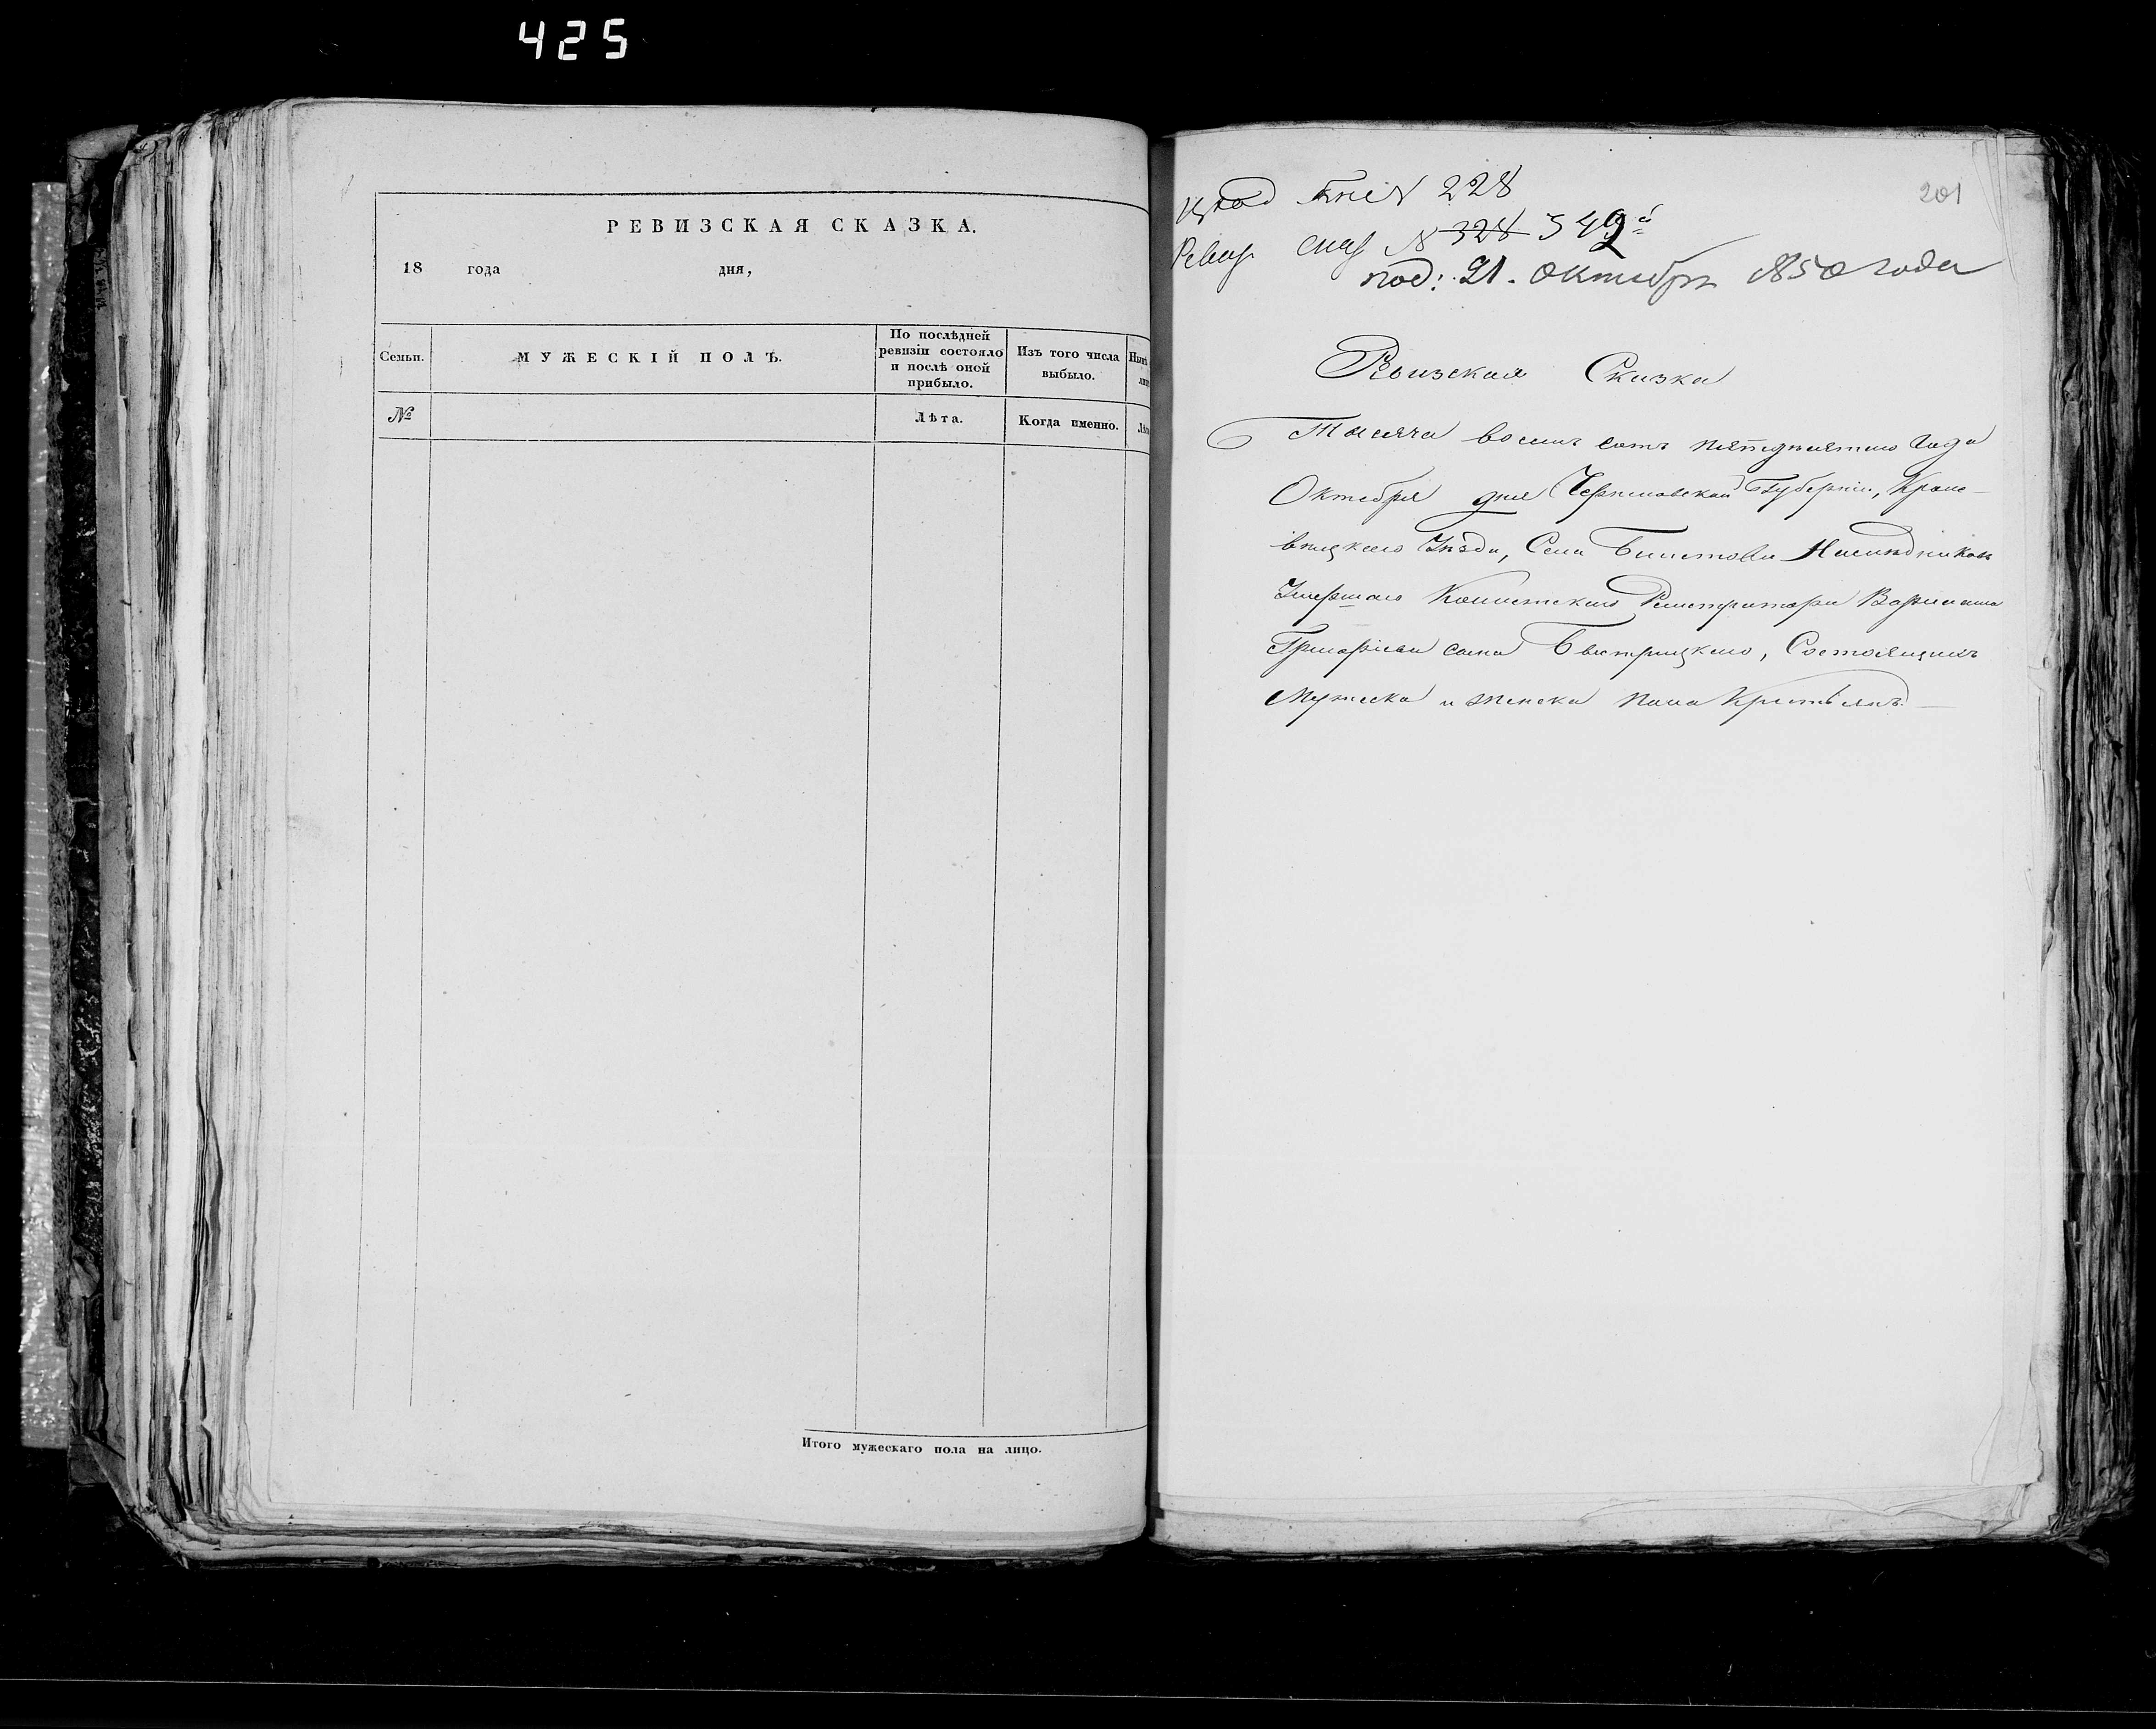 425
РЕВИЗСКАЯ СКАЗКА.
18 года дня,
Семьи.
МУЖЕСКІЙ ПОЛЪ.
По послѣдней
ревизіи состояло
и послѣ оной
прибыло.
Изъ того числа
выбыло.
№
Лѣта.
Когда именно.
Итого мужескаго пола на лицо.
201
№ 228
Ревиз. сказ № 328 349
под: 21. октября 1850 года
Ревизская Сказка
Тысяча восемь сотъ пятдесятаго Года
Октября дня Черниговской Губерніи, Кроле-
вецкаго Уезда, Села Наследниковъ
Умершаго Регистратора
Григорьева сына Быстрицкаго, Состоящихъ
Мужеска и женска пола